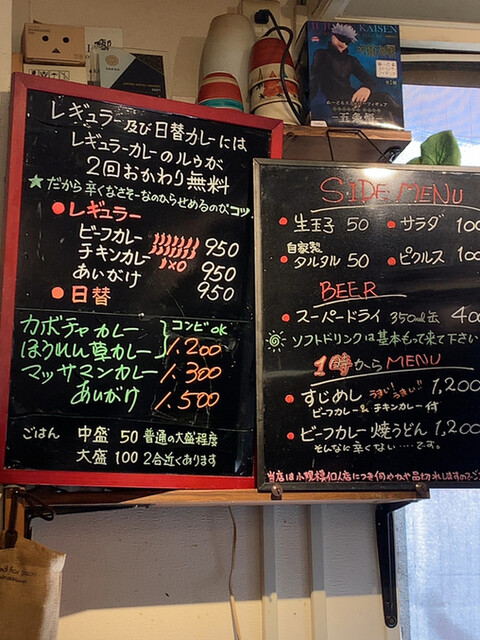 レギュラー及び日替カレーには
レギュラーカレーのルうが
2回おかわり無料
★だから辛くなさそーなのからせめるのがコツ
●レギュラー
ビーフカレー 950
チキンカレー
あいがけ 950
●日替 950
カボチャカレー
ほうれん草カレー コンビok 1.200
マッサマンカレー 1.300
あいがけ 1.500
ごはん 中盛 50 普通の大盛程度
大盛 100 2合近くあります
JUJUTSU KAISEN
五条悟
SIDE MENU
●生玉子 50 ●サラダ 100
自家製
●タルタル 50 ●ピクルス 100
BEER
●スーパードライ 350ml缶 400
ソフトドリンクは基本もって来て下さい
1時からMENU
●すじめし うまい うまい!! 1,200
ビーフカレー& チキンカレー付
●ビーフカレー焼うどん 1,200
そんなに辛くない……です。
当店は小規模個人店につき何やかや品切れします